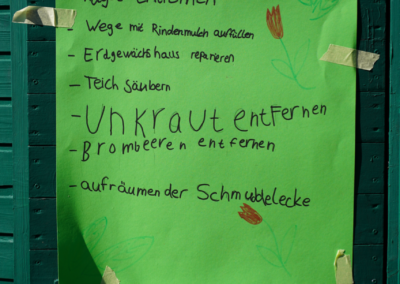 entfernen
- Wege mit Rindenmulch auffüllen
- Erdgewächshaus reparieren
- Teich säubern
- Unkraut entfernen
- Brombeeren entfernen
- aufräumen der Schmuddelecke